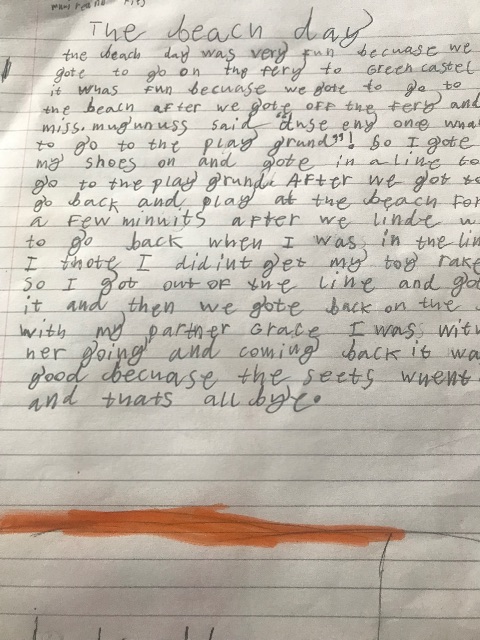 The beach day
the beach day was very fun becuase we
gote to go on the fery to Green castel
it whas fun becuase we gote to go to
the beach after we gote off the fery and
miss. mugunuss said "dnse eny one
to go to the play grund"! So I gote
my shoes on and gote in a line to
go to the play grund. After we got to
go back and play at the beach for
a few minuits after we linde
to go back when I was in the lin
I thote I did int get my toy rake
So I got out of the line and got
it and then we gote back on the
with my partner Grace I was with
her going and coming back it wa
good becuase the seets whent
and thats all bye.